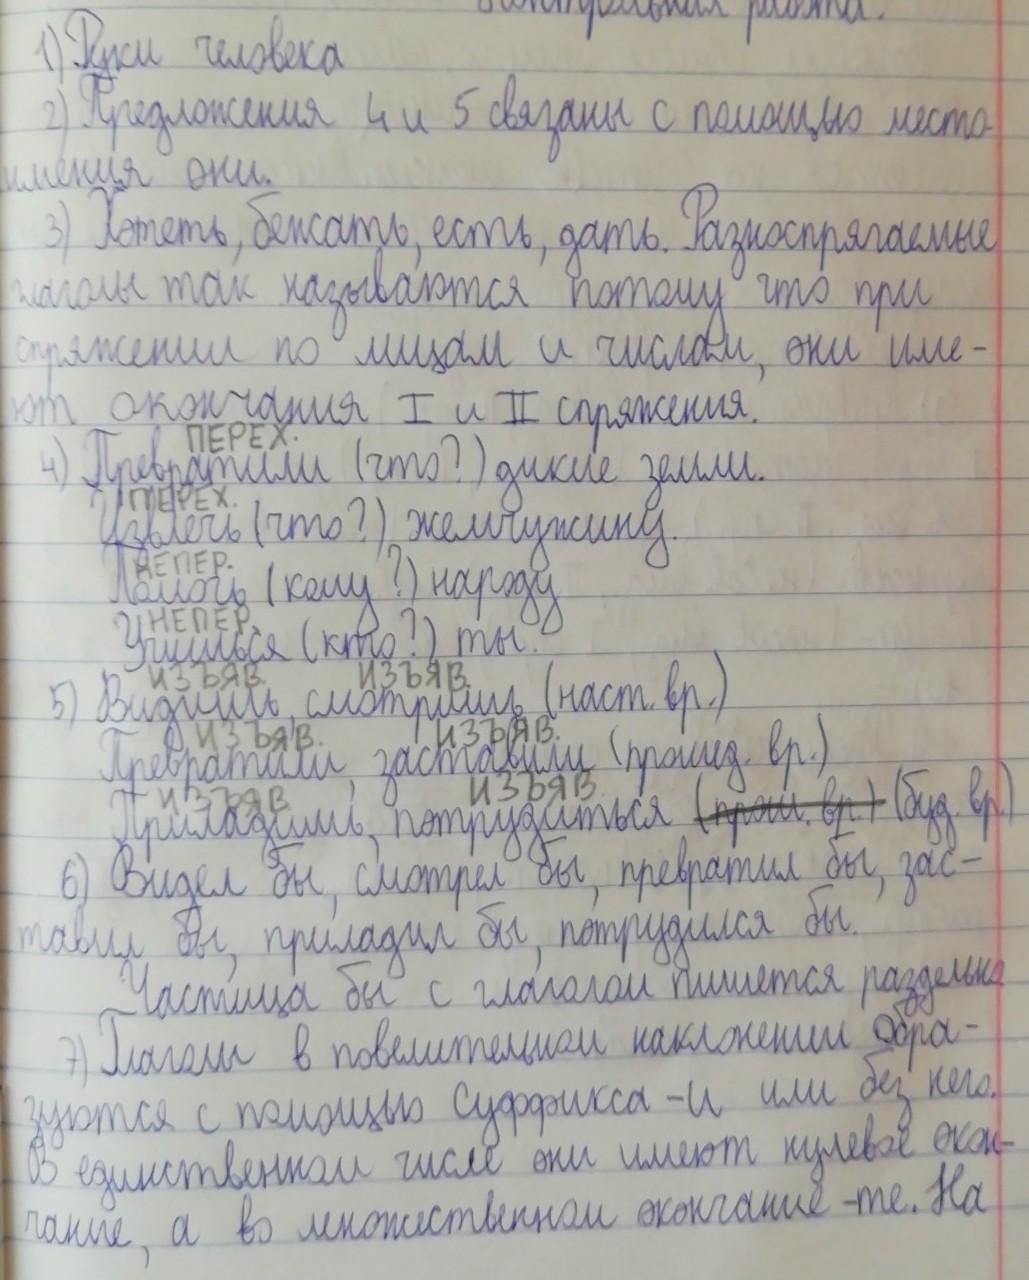 Контрольная работа.
1) Руки человека
2) Предложения 4 и 5 связаны с помощью место-
имения они.
3) Хотеть, бежать, есть, дать. Разноспрягаемые
глаголы так называются потому что при
спряжении по лицам и числам, они име-
ют окончания I и II спряжения.
ПЕРЕХ.
4) Превратили (что?) дикие земли.
ПЕРЕХ.
Извлечь (что?) жемчужину.
НЕПЕР.
Помочь (кому?) народу
НЕПЕР.
Учишься (кто?) ты.
ИЗЪЯВ. ИЗЪЯВ.
5) Видишь, смотришь (наст. вр.)
ИЗЪЯВ. ИЗЪЯВ.
Превратили, заставили (прошед. вр.)
ИЗЪЯВ ИЗЪЯВ.
Приладишь, потрудиться (прош. вр.) (буд. вр.)
6) Видел бы, смотрел бы, превратил бы, зас-
тавил бы, приладил бы, потрудился бы.
Частица бы с глаголом пишется раздельно
7) Глаголы в повелительном наклонении обра-
зуются с помощью суффикса -и или без него.
В единственном числе они имеют нулевое окон-
чание, а во множественном окончание -те. На